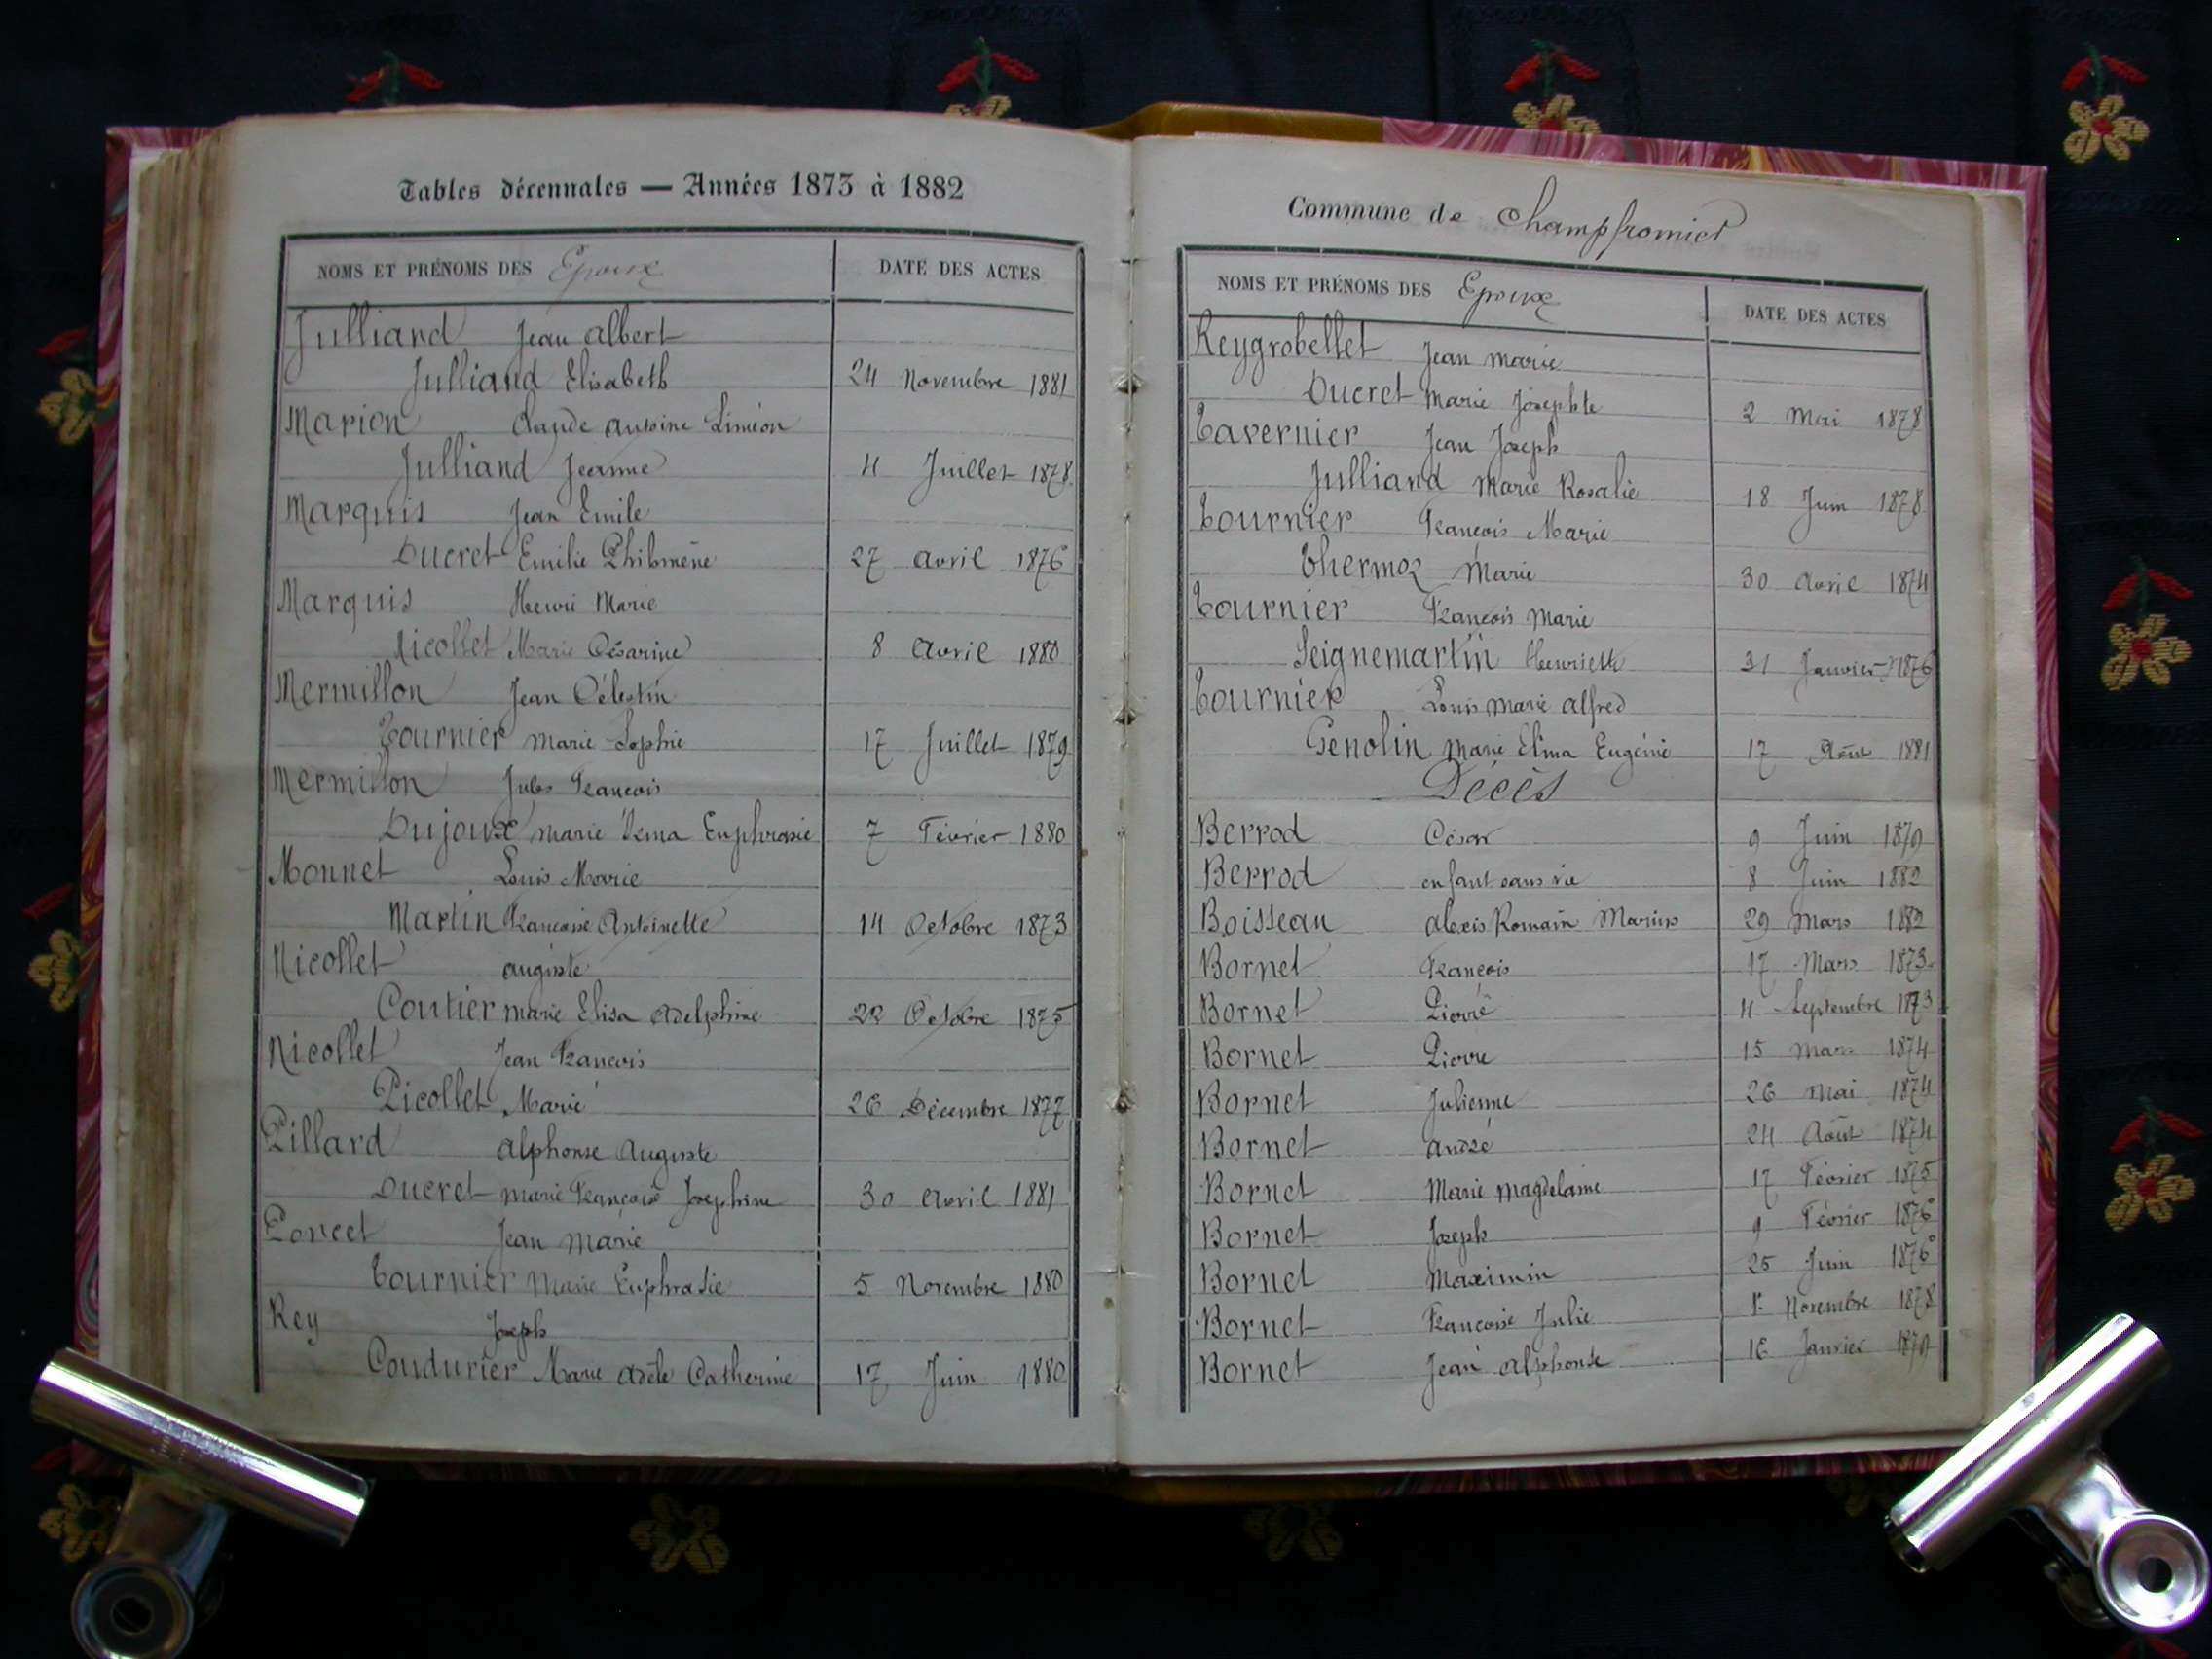 Tables décennales — Années 1873 à 1882
NOMS ET PRÉNOMS DES Epoux DATE DES ACTES
Julliard Jean albert
Julliand Elisabeth 24 Novembre 1881
Marion Claude antoine Siméon
Julliand Jeanne 4 Juillet 1878
Marquis Jean Emile
Ducret Emilie Philomène 27 avril 1876
Marquis Henri Marie
Nicollet Marie Césarine 8 avril 1880
Mermillon Jean Célestin
Tournier marie Sophie 17 Juillet 1879
Mermillon Jules François
Dujoux marie Irma Euphrasie 7 Février 1880
Monnet Louis Marie
Martin Françoise Antoinette 14 Octobre 1873
Nicollet auguste
Coutier marie Elisa adelphine 22 Octobre 1875
Nicollet Jean François
Picollet Marie 26 Décembre 1877
Pillard alphonse Auguste
Ducret marie Françoise Josephine 30 avril 1881
Poncet Jean Marie
Tournier Marie Euphrasie 5 Novembre 1880
Rey Joseph
Coudurier Marie adèle Catherine 17 Juin 1880
Commune de Champfromier
NOMS ET PRÉNOMS DES Epoux DATE DES ACTES
Reygrobellet Jean marie
Ducret Marie Josephte 2 Mai 1878
Tavernier Jean Joseph
Julliand Marie Rosalie 18 Juin 1878
Tournier François Marie
Thermoz Marie 30 avril 1874
Tournier François Marie
Seignemartin Henriette 31 Janvier 1876
Tournier Louis Marie alfred
Genolin Marie Elma Eugénie 17 Août 1881
Décès
Berrod César 9 Juin 1879
Berrod enfant sans vie 8 Juin 1882
Boisseau alexis Romain Marius 29 Mars 1882
Bornet François 17 Mars 1873
Bornet Pierre 4 Septembre 1873
Bornet Pierre 15 Mars 1874
Bornet Julienne 26 Mai 1874
Bornet André 24 Août 1874
Bornet Marie Magdelaine 17 Février 1875
Bornet Joseph 9 Février 1876
Bornet Maximin 25 Juin 1876
Bornet Françoise Julie Novembre 1878
Bornet Jean alphonse Janvier 1879